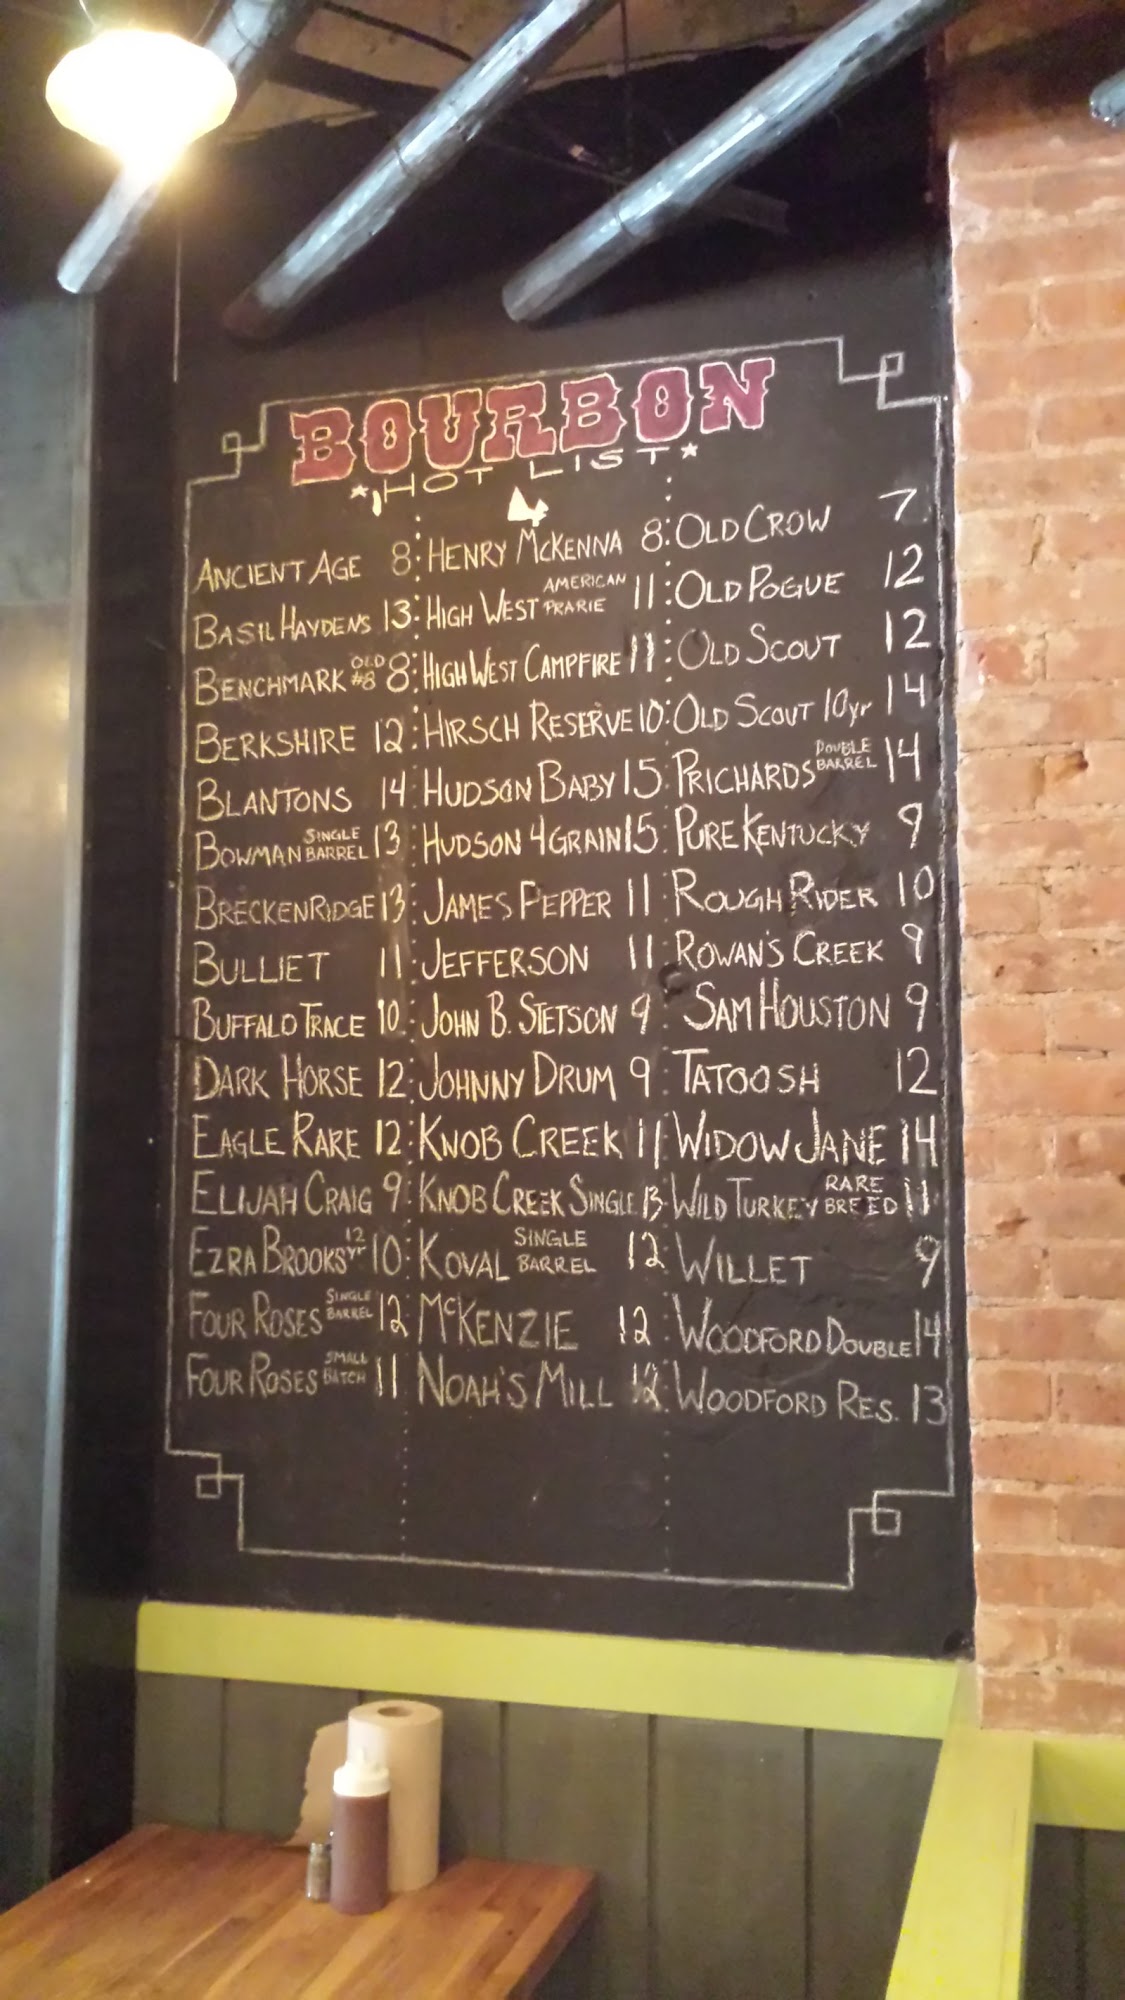 BOURBON
*HOT LIST*
ANCIENT AGE 8
BASIL HAYDENS 13
BENCHMARK OLD #8 8
BERKSHIRE 12
BLANTONS 14
BOWMAN SINGLE BARREL 13
BRECKENRIDGE 13
BULLIET 11
BUFFALO TRACE 10
DARK HORSE 12
EAGLE RARE 12
ELIJAH CRAIG 9
EZRA BROOKS 12 yr 10
FOUR ROSES SINGLE BARREL 12
FOUR ROSES SMALL BATCH 11
HENRY McKENNA 8
HIGH WEST AMERICAN PRARIE 11
HIGH WEST CAMPFIRE 11
HIRSCH RESERVE 10
HUDSON BABY 15
HUDSON 4 GRAIN 15
JAMES PEPPER 11
JEFFERSON 11
JOHN B. STETSON 9
JOHNNY DRUM 9
KNOB CREEK 11
KNOB CREEK SINGLE 13
KOVAL SINGLE BARREL 12
McKENZIE 12
NOAH'S MILL 12
OLD CROW 7
OLD POGUE 12
OLD SCOUT 12
OLD SCOUT 10yr 14
PRICHARDS DOUBLE BARREL 14
PURE KENTUCKY 9
ROUGH RIDER 10
ROWAN'S CREEK 9
SAM HOUSTON 9
TATOOSH 12
WIDOW JANE 14
WILD TURKEY RARE BREED 11
WILLET 9
WOODFORD DOUBLE 14
WOODFORD RES. 13